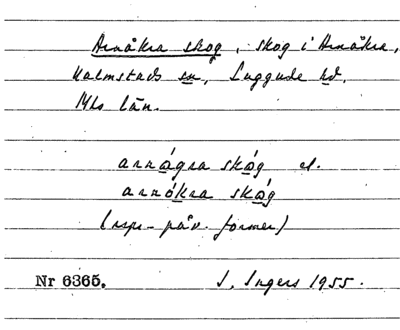 Arnåkra skog, skog i Arnåkra,
Kalmstads sn, Luggude hd.
Mhs län.
arnågra skåg el.
arnókra skåg
(rspr-påv. former)
Nr 6365. I. Ingers 1955.